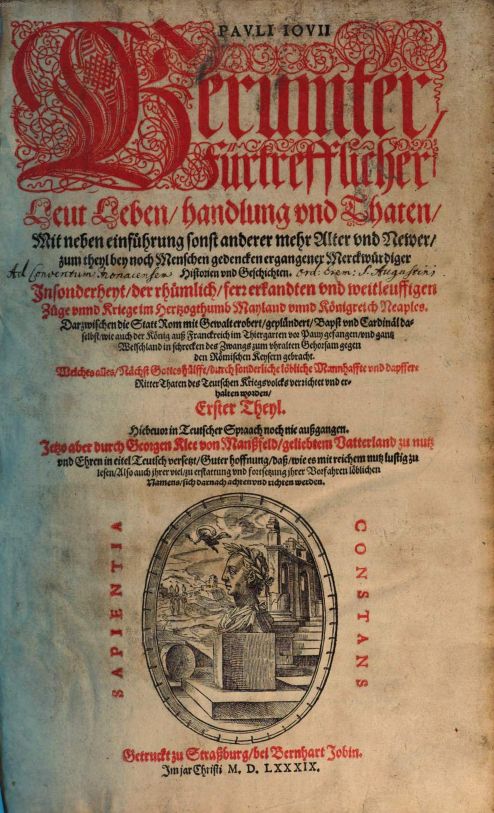 PAVLI IOVII
Berümter/
Fürtrefflicher
Leut Leben/ handlung vnd Thaten/
Mit neben einführung sonst anderer mehr Alter vnd Newer/
zum theyl bey noch Menschen gedencken ergangener Merckwürdiger
Historien vnd Geschichten.
Ad Conventum Monacensem Ord: Erem: S. Augustini
Insonderheyt/ der rhümlich/ ferr erkandten vnd weitleuffigen
Züge vnnd Kriege im Hertzogthumb Mayland vnnd Königreich Neaples.
Darzwischen die Statt Rom mit Gewalt erobert/ geplündert/ Bapst vnd Cardinäl da-
selbst/ wie auch der König auß Franckreich im Thiergarten vor Pauy gefangen/ vnd gantz
Welschland in schrecken des Zwangs zum vhralten Gehorsam gegen
den Römischen Keysern gebracht.
Welches alles/ Nächst Gottes hülffe/ durch sonderliche löbliche Mannhaffte vnd dapffere
Ritter Thaten des Teutschen Kriegsvolcks verrichtet vnd er-
halten worden/
Erster Theyl.
Hiebeuor in Teutscher Spraach noch nie außgangen.
Jetzo aber durch Georgen Klee von Manßfeld/ geliebtem Vatterland zu nutz
vnd Ehren in eitel Teutsch versetzt/ Guter hoffnung/ daß/ wie es mit reichem nutz lustig zu
lesen/ Also auch ihrer viel/ zu erstattung vnd fortsetzung ihrer Vorfahren löblichen
Namens/ sich darnach achten vnd richten werden.
SAPIENTIA
CONSTANS
Getruckt zu Straßburg/ bei Bernhart Jobin.
Im jar Christi M. D. LXXXIX.